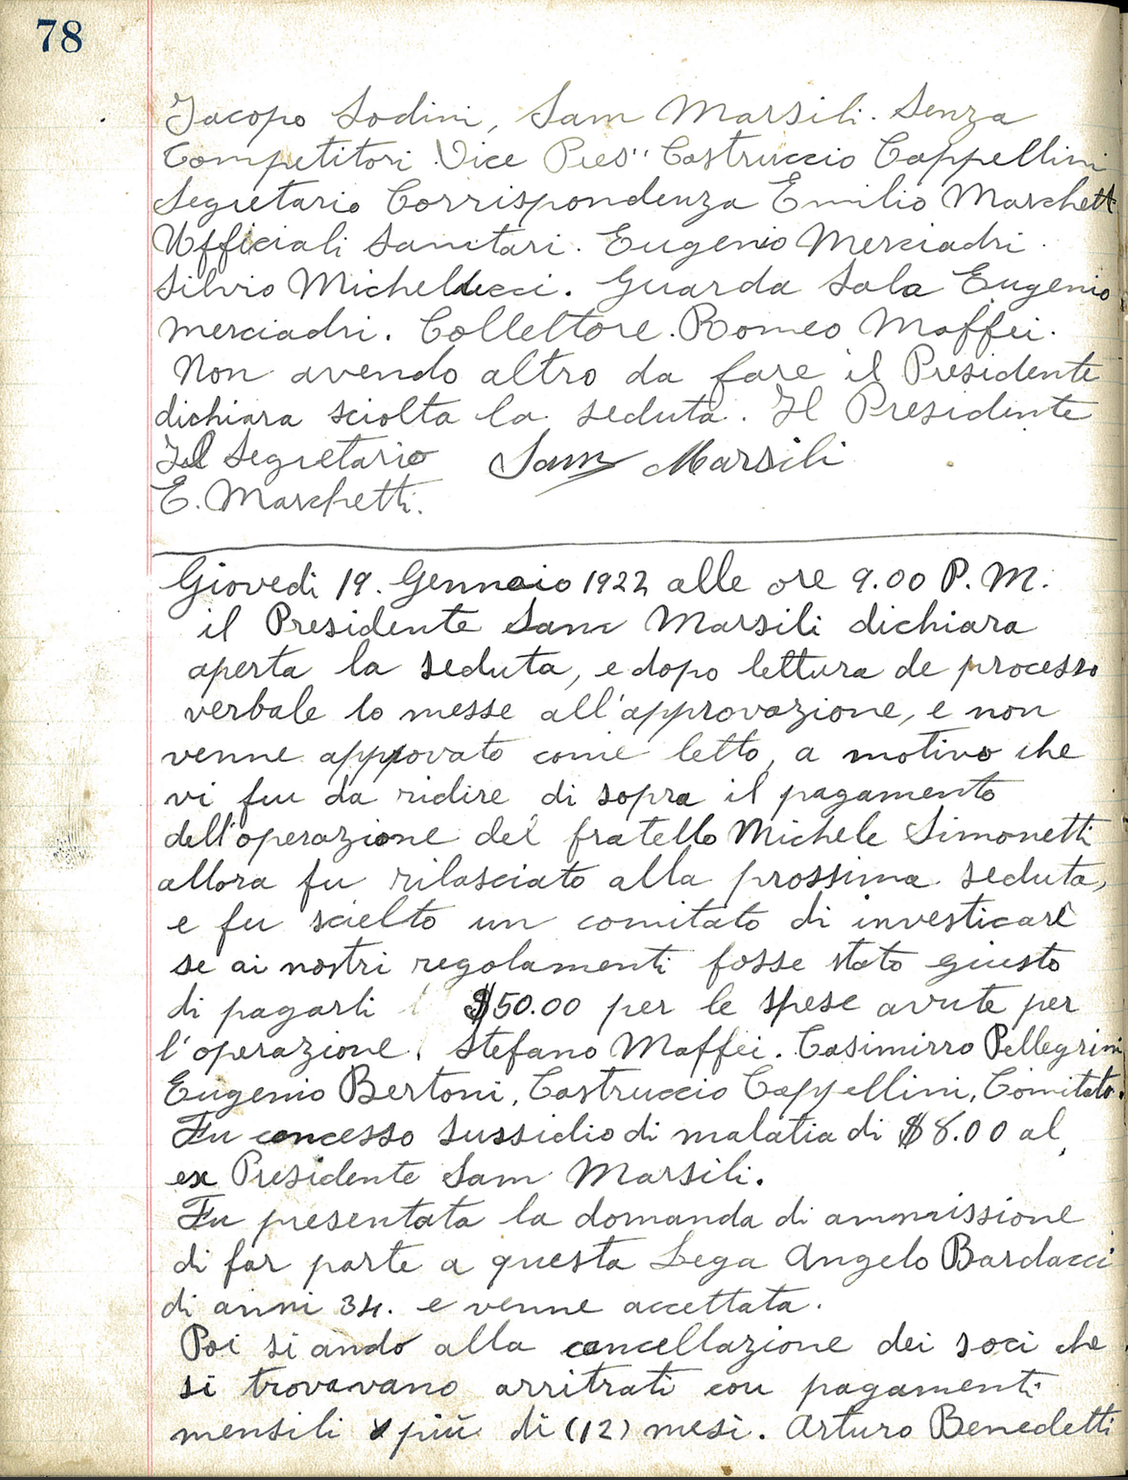 78
Jacopo Sodini, Sam Marsili. Senza
Competitori Vice Pres" Castruccio Cappellini
Segretario Corrispondenza Emilio Marchett
Ufficiali Sanitari. Eugenio Merciadri.
Silvio Michelucci. Guarda Sala Eugenio
Merciadri. Collettore. Romeo Maffei.
Non avendo altro da fare il Presidente
dichiara sciolta la seduta. Il Presidente
Il Segretario Sam Marsili
E. Marchetti.
Giovedi 19. Gennaio 1922 alle ore 9.00 P. M.
il Presidente Sam Marsili dichiara
aperta la seduta, e dopo lettura de processo
verbale lo messe all'approvazione, e non
venne approvato come letto, a motivo che
vi fu da ridire di sopra il pagamento
dell'operazione del fratello Michele Simonetti
allora fu rilasciato alla prossima seduta,
e fu scielto un comitato di investicare
se ai nostri regolamenti fosse stato giusto
di pagarli $50.00 per le spese avute per
l'operazione. Stefano Maffei. Casimirro Pellegrini
Eugenio Bertoni, Castruccio Cappellini, Comitato.
Fu concesso sussidio di malatia di $8.00 al
ex Presidente Sam Marsili.
Fu presentata la domanda di ammissione
di far parte a questa Lega Angelo Bardacci
di anni 34. e venne accettata.
Poi si ando alla cancellazione dei soci che
si trovavano arritrati con pagamenti
mensili più di (12) mesi. Arturo Benedetti